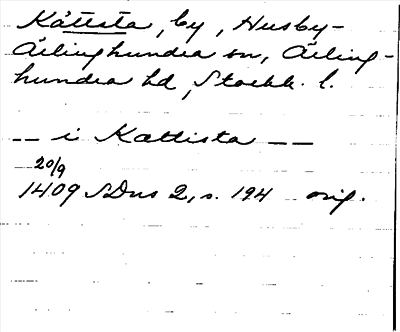 Kättsta, by, Husby-
Ärlinghundra sn, Ärling-
hundra hd, Stockh. l.
-- i Kættista --
20/9
1409 SDns 2, s. 194 orig.